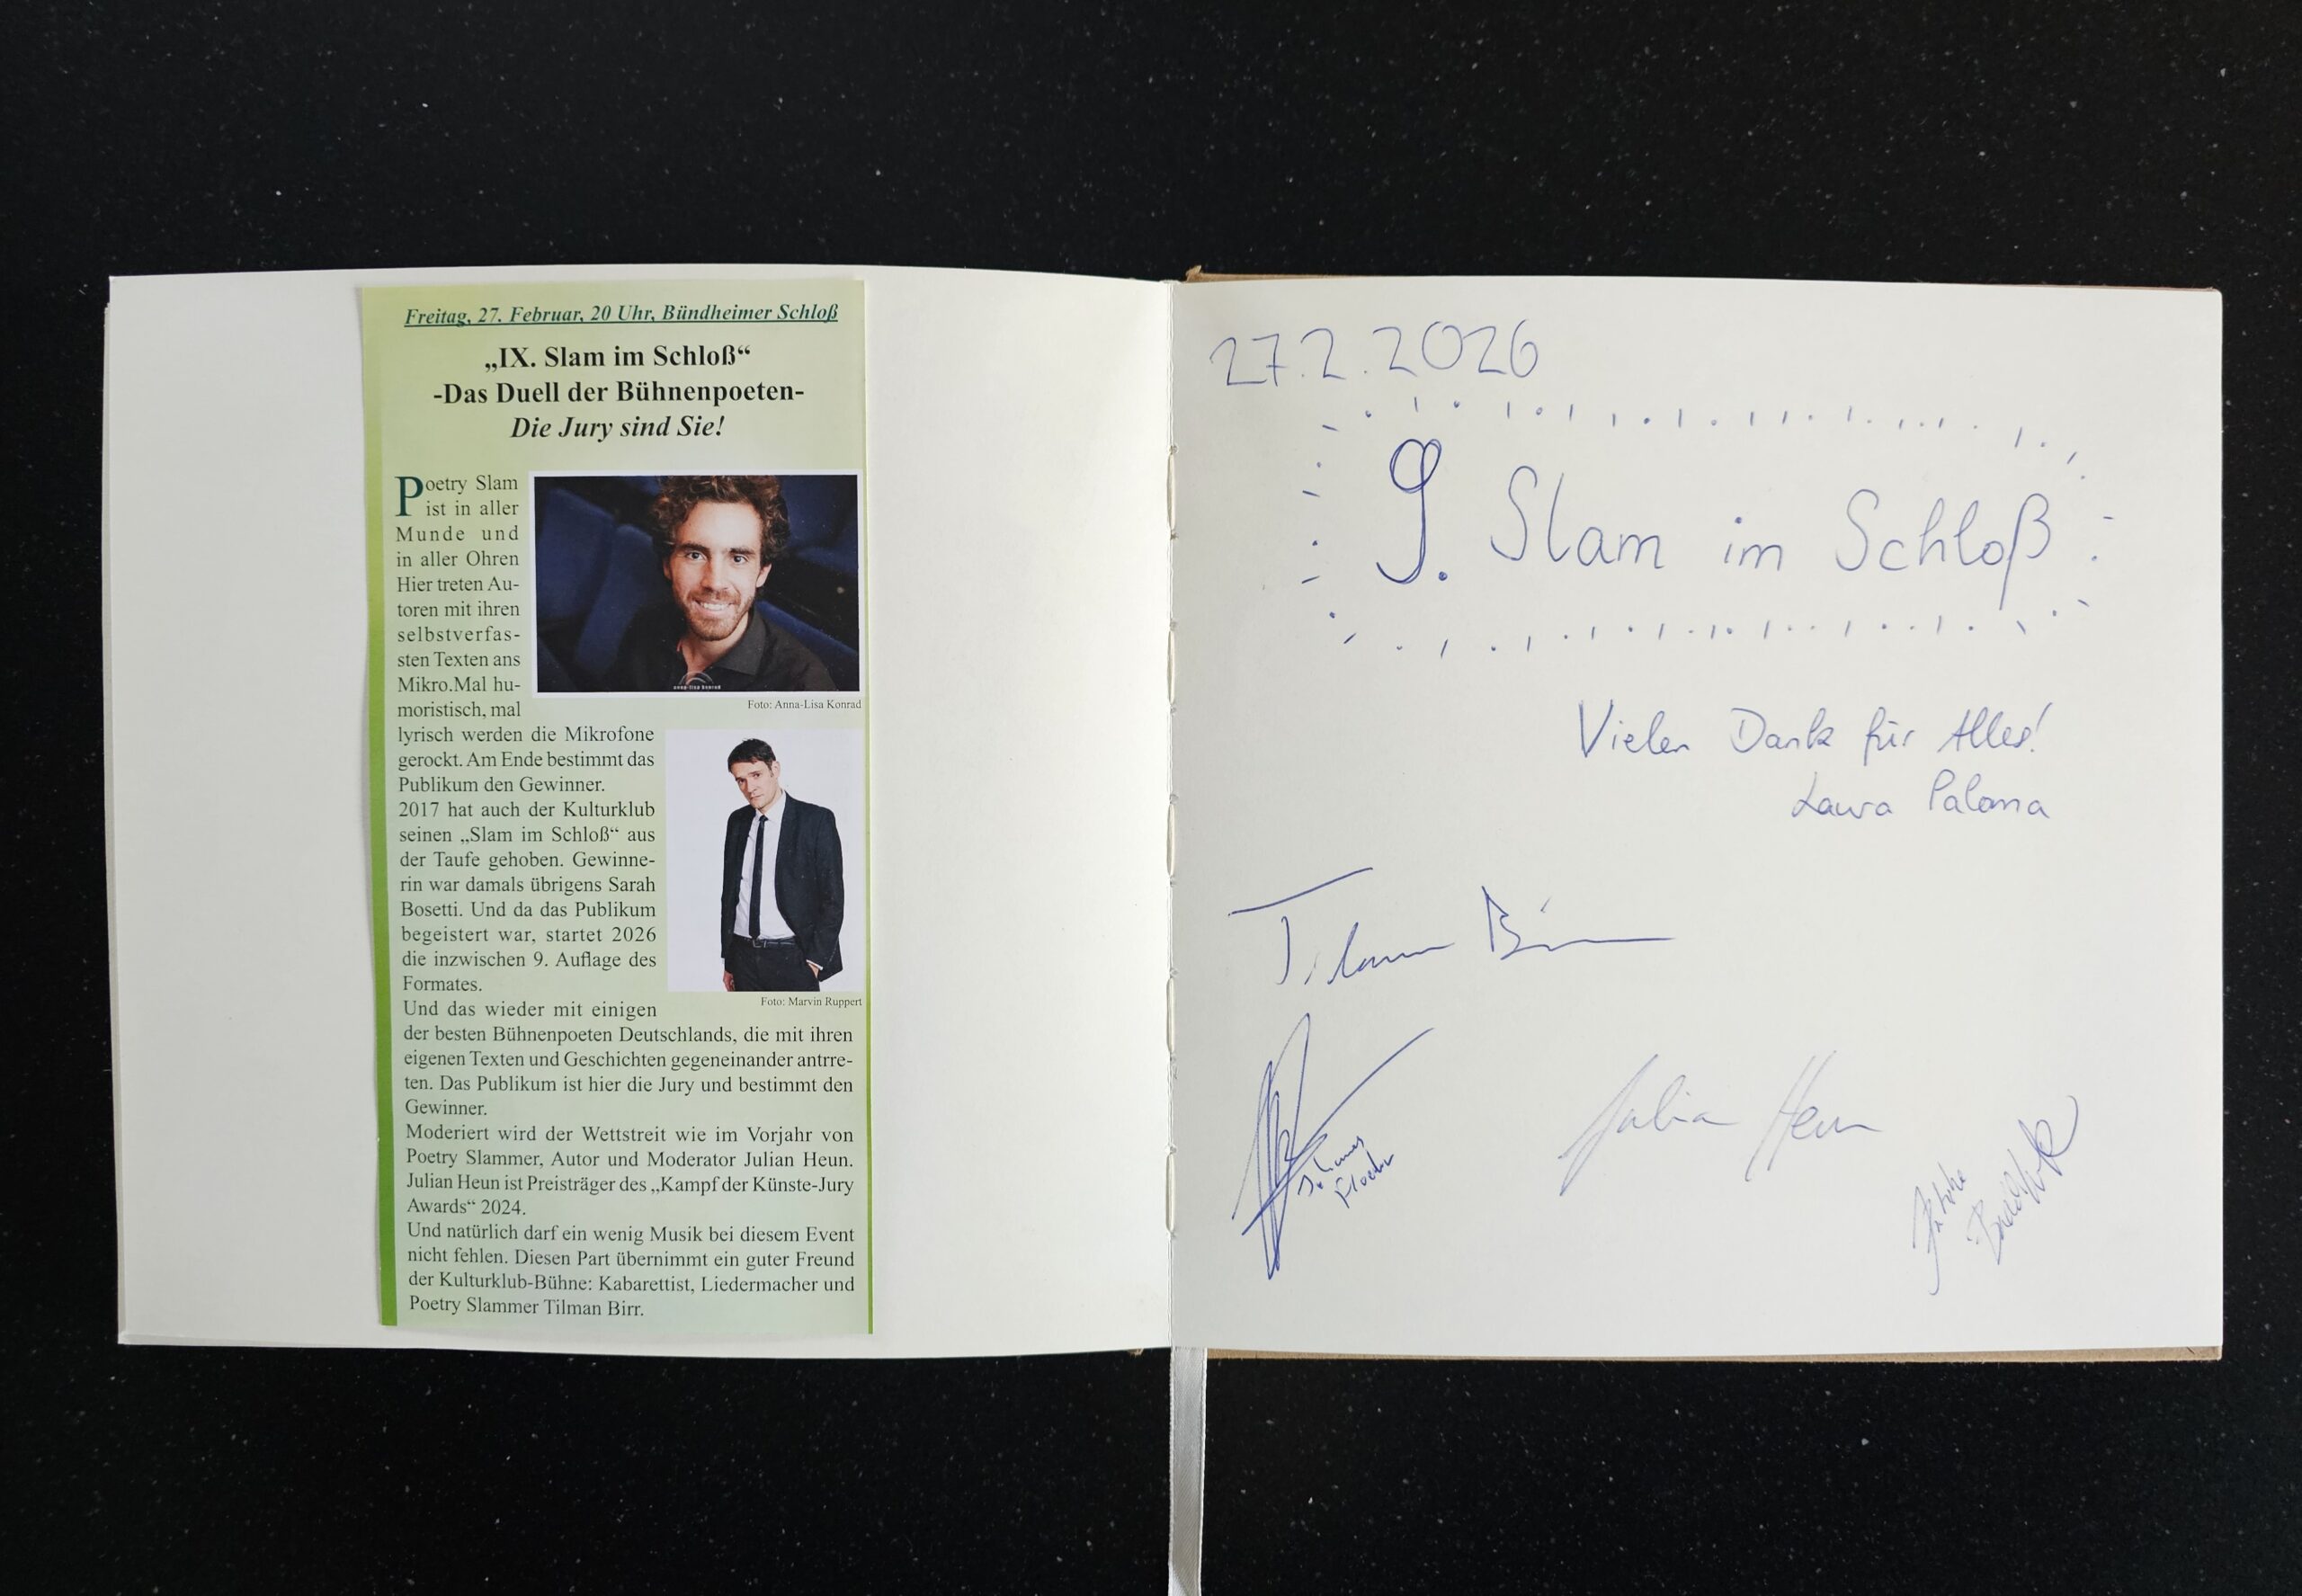 Freitag, 27. Februar, 20 Uhr, Bündheimer Schloß
„IX. Slam im Schloß“
-Das Duell der Bühnenpoeten-
Die Jury sind Sie!
Poetry Slam
ist in aller
Munde und
in aller Ohren
Hier treten Au-
toren mit ihren
selbstverfas-
sten Texten ans
Mikro.Mal hu-
moristisch, mal
lyrisch werden die Mikrofone
gerockt. Am Ende bestimmt das
Publikum den Gewinner.
2017 hat auch der Kulturklub
seinen „Slam im Schloß“ aus
der Taufe gehoben. Gewinne-
rin war damals übrigens Sarah
Bosetti. Und da das Publikum
begeistert war, startet 2026
die inzwischen 9. Auflage des
Formates.
Und das wieder mit einigen
der besten Bühnenpoeten Deutschlands, die mit ihren
eigenen Texten und Geschichten gegeneinander antrre-
ten. Das Publikum ist hier die Jury und bestimmt den
Gewinner.
Moderiert wird der Wettstreit wie im Vorjahr von
Poetry Slammer, Autor und Moderator Julian Heun.
Julian Heun ist Preisträger des „Kampf der Künste-Jury
Awards“ 2024.
Und natürlich darf ein wenig Musik bei diesem Event
nicht fehlen. Diesen Part übernimmt ein guter Freund
der Kulturklub-Bühne: Kabarettist, Liedermacher und
Poetry Slammer Tilman Birr.
anna-lisa konrad
Foto: Anna-Lisa Konrad
Foto: Marvin Ruppert
27.2.2026
9. Slam im Schloß
Vielen Dank für Alles!
Laura Paloma
Tilman Birr
Johannes
Floehr
Julian Heun